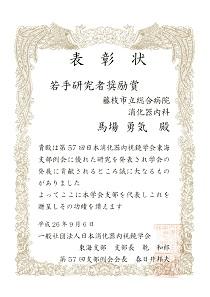 表彰状
若手研究者奨励賞
藤枝市立総合病院
消化器内科
馬場 勇気 殿
貴殿は第57回日本消化器内視鏡学会東海
支部例会に優れた研究を発表され学会の
発展に貢献されるところ誠に大なるもの
がありました
よってここに本学会支部を代表しこれを
贈呈しその功績を讃えます
平成26年9月6日
一般社団法人日本消化器内視鏡学会
東海支部 支部長 乾 和郎
第57回支部例会会長 春日井邦夫